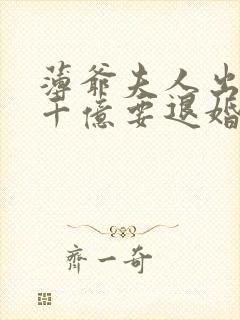 薄爺夫人出
十億要退婚
齊一奇